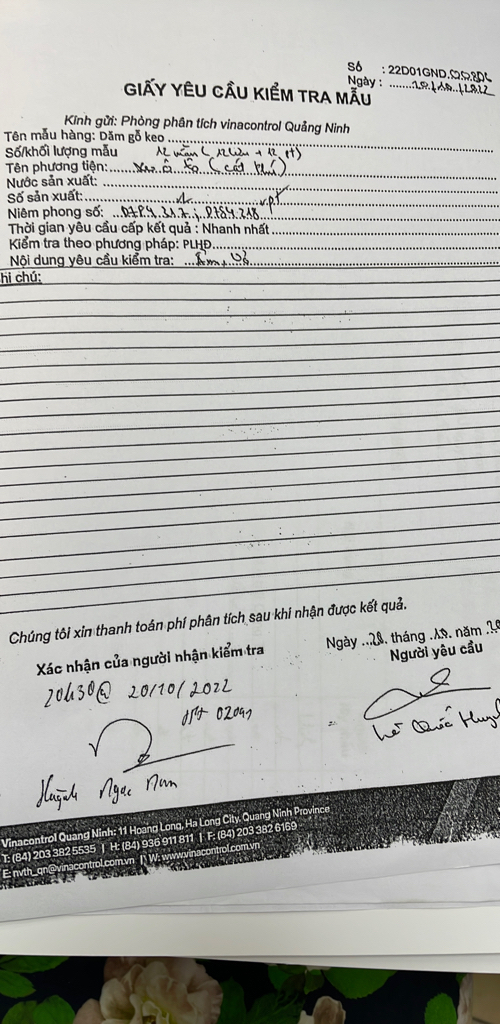 Số : 22D01GND.
Ngày :
GIẤY YÊU CẦU KIỂM TRA MẪU
Kính gửi: Phòng phân tích vinacontrol Quảng Ninh
Tên mẫu hàng: Dăm gỗ keo
Số/khối lượng mẫu
Tên phương tiện:
Nước sản xuất:
Số sản xuất:
Niêm phong số:
Thời gian yêu cầu cấp kết quả : Nhanh nhất
Kiểm tra theo phương pháp: PLHĐ
Nội dung yêu cầu kiểm tra:
hi chú:
Chúng tôi xin thanh toán phí phân tích sau khi nhận được kết quả.
Ngày 20 tháng 10 năm 20
Xác nhận của người nhận kiểm tra
Người yêu cầu
20h30@ 20/10/2022
Huỳnh Ngọc Nam
Lê Quốc Huy
Vinacontrol Quang Ninh: 11 Hoang Long, Ha Long City, Quang Ninh Province
T: (84) 203 382 5535 | H: (84) 936 911 811 | F: (84) 203 382 6169
E: nvth_qn@vinacontrol.com.vn | W: www.vinacontrol.com.vn